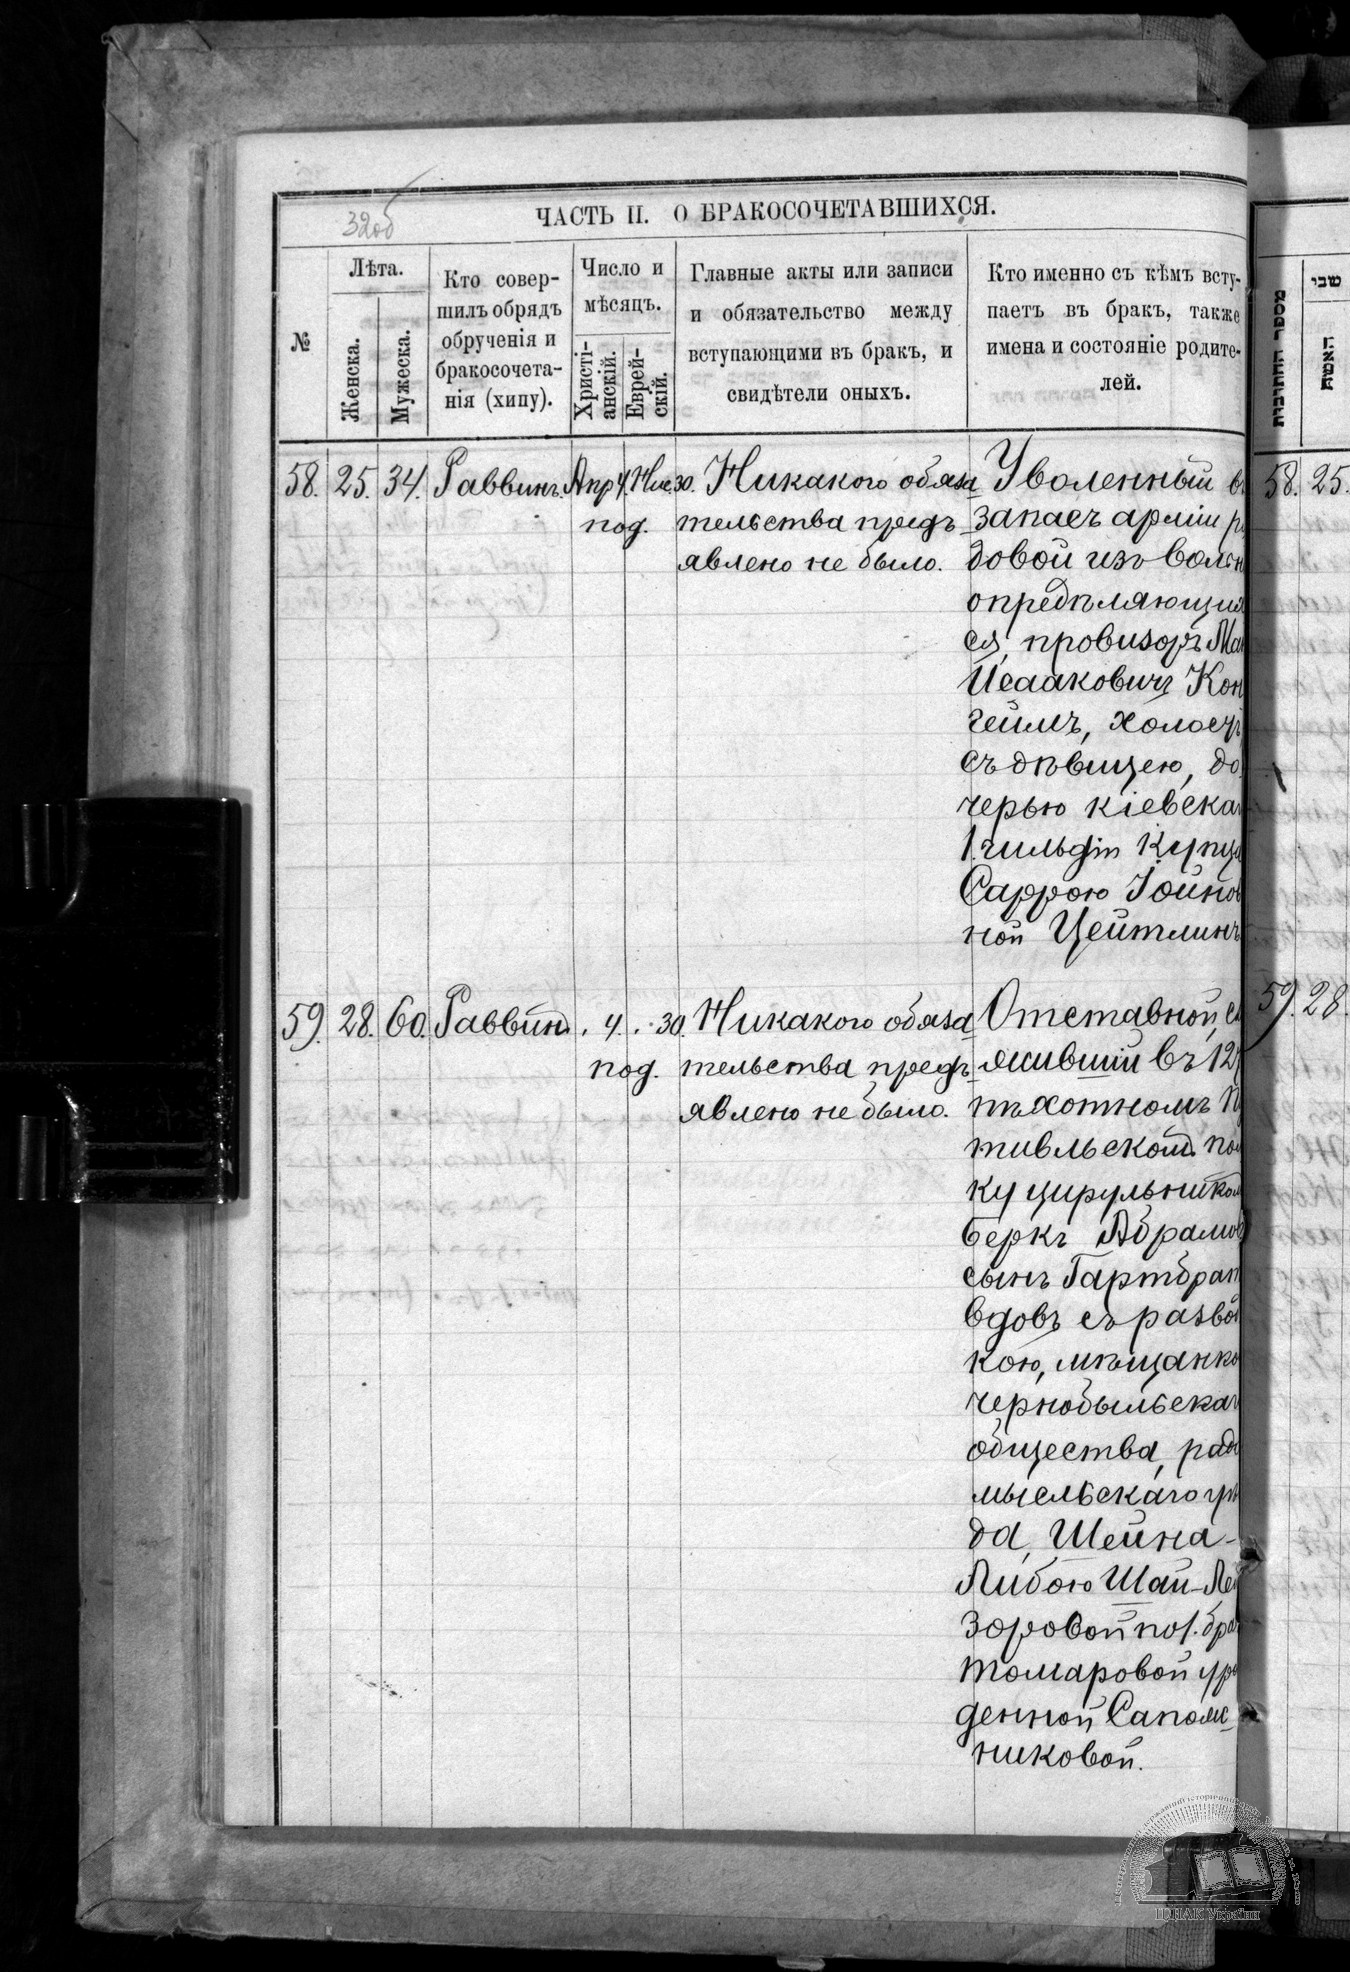 32об
ЧАСТЬ II. О БРАКОСОЧЕТАВШИХСЯ.
№
Лѣта.
Женска.
Мужеска.
Кто совер-
шилъ обрядъ
обрученія и
бракосочета-
нія (хипу).
Число и
мѣсяцъ.
Христі-
анскій.
Еврей-
скій.
Главные акты или записи
и обязательство между
вступающими въ бракъ, и
свидѣтели оныхъ.
Кто именно съ кѣмъ всту-
паетъ въ бракъ, также
имена и состояніе родите-
лей.
58. 25. 34. Раввинъ. Апр 4. Нис. 30.
под.
Никакого обяза
тельства предъ
явлено не было.
Уволенный въ
запасъ арміи ря
довой изъ вольн
опредѣляющих
ся, провизоръ
Исааковичъ Кон
геймъ, холостъ
съ дѣвицею, до
черью кіевскаг
1. гильдіи купца
Саррою Іойнов
ной Цейтлинъ
59. 28. 60. Раввинъ. 4. 30.
под.
Никакого обяза
тельства предъ
явлено не было.
Отставной, сл
жившій въ 127
пѣхотномъ П
тивльскомъ пол
ку цирульником
Беркъ Абрамов
сынъ Гартбран
вдовъ съ развод
кою, мѣщанко
чернобыльскаг
общества, радо
мысльскаго уѣз
да, Шейна-
Либою Шай-Лей
зоровой по 1. бра
томаровой уро
денной Сапож
никовой.
מספר החתונות
שני
האשה
58. 25.
59. 28.
ЦДІАК України